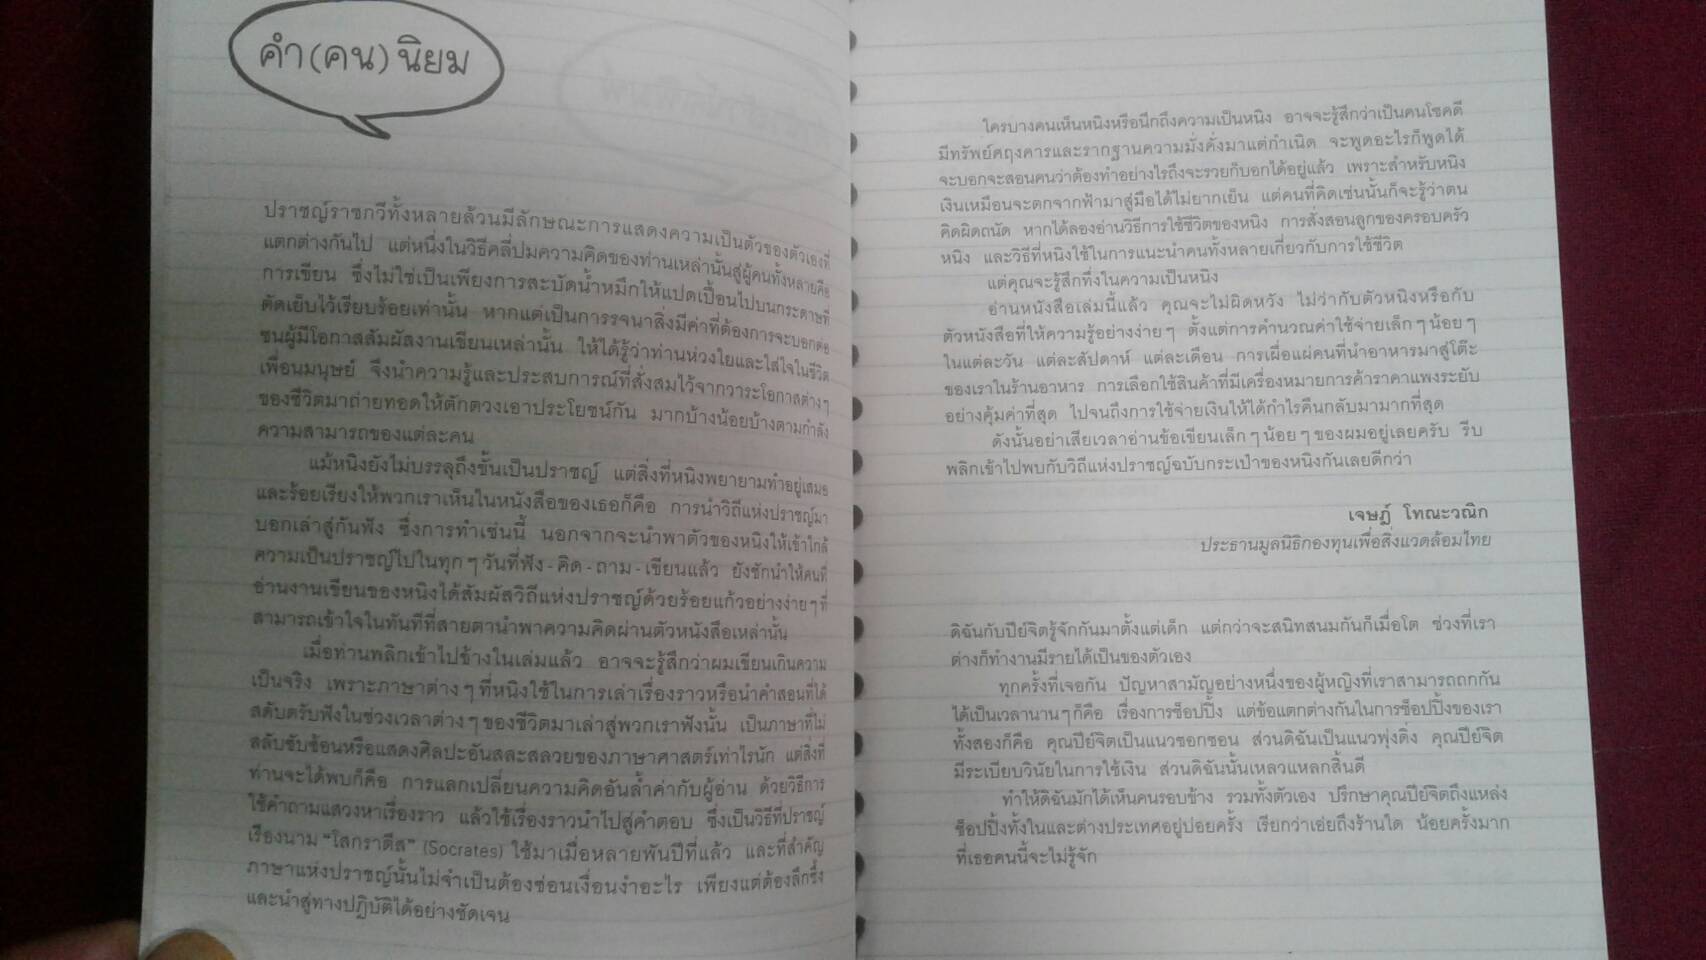 คำ(คน)นิยม
ปราชญ์ราชกวีทั้งหลายล้วนมีลักษณะการแสดงความเป็นตัวของตัวเองที่
แตกต่างกันไป แต่หนึ่งในวิธีคลี่ปมความคิดของท่านเหล่านั้นสู่ผู้คนทั้งหลายคือ
การเขียน ซึ่งไม่ใช่เป็นเพียงการสะบัดน้ำหมึกให้แปดเปื้อนไปบนกระดาษที่
ตัดเย็บไว้เรียบร้อยเท่านั้น หากแต่เป็นการรจนาสิ่งมีค่าที่ต้องการจะบอกต่อ
ชนผู้มีโอกาสสัมผัสงานเขียนเหล่านั้น ให้ได้รู้ว่าท่านห่วงใยและใส่ใจในชีวิต
เพื่อนมนุษย์ จึงนำความรู้และประสบการณ์ที่สั่งสมไว้จากวาระโอกาสต่างๆ
ของชีวิตมาถ่ายทอดให้ตักตวงเอาประโยชน์กัน มากบ้างน้อยบ้างตามกำลัง
ความสามารถของแต่ละคน
แม้หนิงยังไม่บรรลุถึงขั้นเป็นปราชญ์ แต่สิ่งที่หนิงพยายามทำอยู่เสมอ
และร้อยเรียงให้พวกเราเห็นในหนังสือของเธอก็คือ การนำวิถีแห่งปราชญ์มา
บอกเล่าสู่กันฟัง ซึ่งการทำเช่นนี้ นอกจากจะนำพาตัวของหนิงให้เข้าใกล้
ความเป็นปราชญ์ไปในทุกๆวันที่ฟัง-คิด-ถาม-เขียนแล้ว ยังชักนำให้คนที่
อ่านงานเขียนของหนิงได้สัมผัสวิถีแห่งปราชญ์ด้วยร้อยแก้วอย่างง่ายๆที่
สามารถเข้าใจในทันทีที่สายตานำพาความคิดผ่านตัวหนังสือเหล่านั้น
เมื่อท่านพลิกเข้าไปข้างในเล่มแล้ว อาจจะรู้สึกว่าผมเขียนเกินความ
เป็นจริง เพราะภาษาต่างๆที่หนิงใช้ในการเล่าเรื่องราวหรือนำคำสอนที่ได้
สดับตรับฟังในช่วงเวลาต่างๆของชีวิตมาเล่าสู่พวกเราฟังนั้น เป็นภาษาที่ไม่
สลับซับซ้อนหรือแสดงศิลปะอันสละสลวยของภาษาศาสตร์เท่าไรนัก แต่สิ่งที่
ท่านจะได้พบก็คือ การแลกเปลี่ยนความคิดอันล้ำค่ากับผู้อ่าน ด้วยวิธีการ
ใช้คำถามแสวงหาเรื่องราว แล้วใช้เรื่องราวนำไปสู่คำตอบ ซึ่งเป็นวิธีที่ปราชญ์
เรืองนาม “โสกราตีส” (Socrates) ใช้มาเมื่อหลายพันปีที่แล้ว และที่สำคัญ
ภาษาแห่งปราชญ์นั้นไม่จำเป็นต้องซ่อนเงื่อนงำอะไร เพียงแต่ต้องลึกซึ้ง
และนำสู่ทางปฏิบัติได้อย่างชัดเจน
ใครบางคนเห็นหนิงหรือนึกถึงความเป็นหนิง อาจจะรู้สึกว่าเป็นคนโชคดี
มีทรัพย์ศฤงคารและรากฐานความมั่งคั่งมาแต่กำเนิด จะพูดอะไรก็พูดได้
จะบอกจะสอนคนว่าต้องทำอย่างไรถึงจะรวยก็บอกได้อยู่แล้ว เพราะสำหรับหนิง
เงินเหมือนจะตกจากฟ้ามาสู่มือได้ไม่ยากเย็น แต่คนที่คิดเช่นนั้นก็จะรู้ว่าตน
คิดผิดถนัด หากได้ลองอ่านวิธีการใช้ชีวิตของหนิง การสั่งสอนลูกของครอบครัว
หนิง และวิธีที่หนิงใช้ในการแนะนำคนทั้งหลายเกี่ยวกับการใช้ชีวิต
แต่คุณจะรู้สึกทึ่งในความเป็นหนิง
อ่านหนังสือเล่มนี้แล้ว คุณจะไม่ผิดหวัง ไม่ว่ากับตัวหนิงหรือกับ
ตัวหนังสือที่ให้ความรู้อย่างง่ายๆ ตั้งแต่การคำนวณค่าใช้จ่ายเล็กๆน้อยๆ
ในแต่ละวัน แต่ละสัปดาห์ แต่ละเดือน การเผื่อแผ่คนที่นำอาหารมาสู่โต๊ะ
ของเราในร้านอาหาร การเลือกใช้สินค้าที่มีเครื่องหมายการค้าราคาแพงระยับ
อย่างคุ้มค่าที่สุด ไปจนถึงการใช้จ่ายเงินให้ได้กำไรคืนกลับมามากที่สุด
ดังนั้นอย่าเสียเวลาอ่านข้อเขียนเล็กๆน้อยๆของผมอยู่เลยครับ รีบ
พลิกเข้าไปพบกับวิถีแห่งปราชญ์ฉบับกระเป๋าของหนิงกันเลยดีกว่า
เจษฎ์ โทณะวณิก
ประธานมูลนิธิกองทุนเพื่อสิ่งแวดล้อมไทย
ดิฉันกับปีย์จิตรู้จักกันมาตั้งแต่เด็ก แต่กว่าจะสนิทสนมกันก็เมื่อโต ช่วงที่เรา
ต่างก็ทำงานมีรายได้เป็นของตัวเอง
ทุกครั้งที่เจอกัน ปัญหาสามัญอย่างหนึ่งของผู้หญิงที่เราสามารถถกกัน
ได้เป็นเวลานานๆก็คือ เรื่องการช็อปปิ้ง แต่ข้อแตกต่างกันในการช็อปปิ้งของเรา
ทั้งสองก็คือ คุณปีย์จิตเป็นแนวชอกชอน ส่วนดิฉันเป็นแนวพุ่งดิ่ง คุณปีย์จิต
มีระเบียบวินัยในการใช้เงิน ส่วนดิฉันนั้นเหลวแหลกสิ้นดี
ทำให้ดิฉันมักได้เห็นคนรอบข้าง รวมทั้งตัวเอง ปรึกษาคุณปีย์จิตถึงแหล่ง
ช็อปปิ้งทั้งในและต่างประเทศอยู่บ่อยครั้ง เรียกว่าเอ่ยถึงร้านใด น้อยครั้งมาก
ที่เธอคนนี้จะไม่รู้จัก